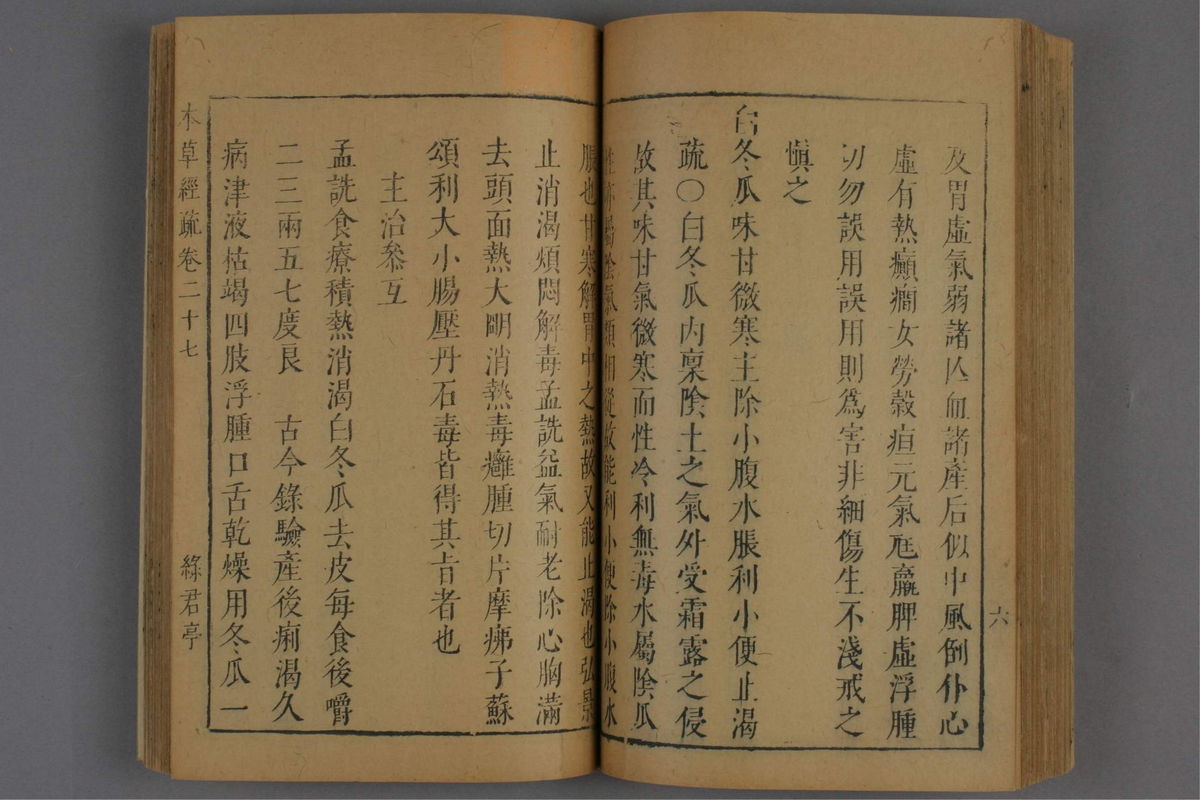 六
及胃虛氣弱諸亾血諸產后似中風倒仆心
虛有熱癲癇女勞穀疸元氣尫羸脾虛浮腫
切勿誤用誤用則爲害非細傷生不淺戒之
愼之
白冬瓜味甘微寒主除小腹水脹利小便止渴
疏〇白冬瓜內稟陰土之氣外受霜露之侵
故其味甘氣微寒而性冷利無毒水屬陰瓜
性亦屬陰氣類相從故能利小便除小腹水
脹也甘寒解胃中之熱故又能止渴也弘景
止消渴煩悶解毒孟詵益氣耐老除心胸滿
去頭面熱大明消熱毒癰腫切片摩痱子蘇
頌利大小腸壓丹石毒皆得其旨者也
主治叅互
孟詵食療積熱消渴白冬瓜去皮每食後嚼
二三兩五七度良 古今錄驗產後痢渴久
病津液枯竭四肢浮腫口舌乾燥用冬瓜一
本草經疏卷二十七
綠君亭